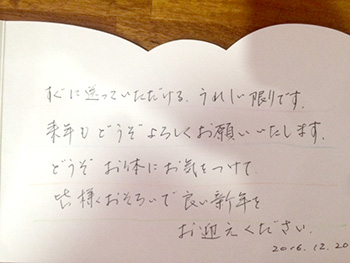 すぐに送っていただける、うれしい限りです。
来年もどうぞよろしくお願いいたします。
どうぞ お体に お気をつけて
皆様おそろいで 良い新年を
お迎えください。
2016.12.20